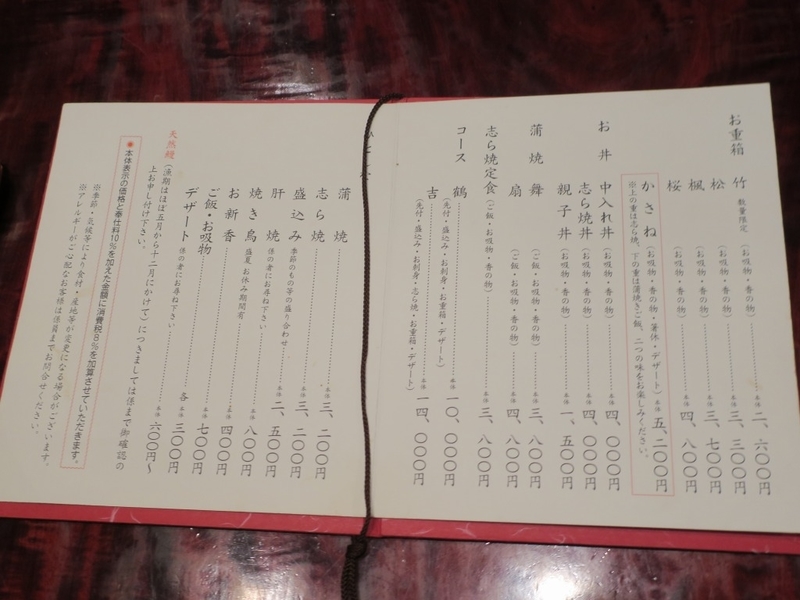 お重箱 竹 数量限定 (お吸物・香の物) 本体 二、六〇〇円
松 (お吸物・香の物) 本体 三、三〇〇円
楓 (お吸物・香の物) 本体 三、七〇〇円
桜 (お吸物・香の物) 本体 四、八〇〇円
かさね (お吸物・香の物・箸休・デザート) 本体 五、二〇〇円
※上の重は志ら焼、下の重は蒲焼きご飯、二つの味をお楽しみください。
お丼 中入れ丼 (お吸物・香の物) 本体 四、〇〇〇円
志ら焼丼 (お吸物・香の物) 本体 四、〇〇〇円
親子丼 (お吸物・香の物) 本体 一、五〇〇円
蒲焼 舞 (ご飯・お吸物・香の物) 本体 三、八〇〇円
扇 (ご飯・お吸物・香の物) 本体 四、八〇〇円
志ら焼定食 (ご飯・お吸物・香の物) 本体 三、八〇〇円
コース 鶴 本体 一〇、〇〇〇円
(先付・盛込み・お刺身・お重箱・デザート)
吉 本体 一四、〇〇〇円
(先付・盛込み・お刺身・志ら焼・お重箱・デザート)
蒲焼 本体 三、二〇〇円
志ら焼 本体 三、二〇〇円
盛込み 季節のもの等の盛り合わせ 本体 二、五〇〇円
肝焼 係の者にお尋ね下さい 本体 八〇〇円
焼き鳥 盛夏、お休み期間有 本体 四〇〇円
お新香 本体 七〇〇円
ご飯・お吸物 各 三〇〇円
デザート 係の者にお尋ね下さい 本体 六〇〇円〜
天然鰻 (漁期はほぼ五月から十二月にかけて)につきましては係まで御確認の
上お申し付け下さい。
●本体表示の価格と奉仕料10%を加えた金額に消費税8%を加算させていただきます。
※季節・気候等により食材・産地等が変更になる場合がございます。
※アレルギーがご心配なお客様は係員までお問合せください。